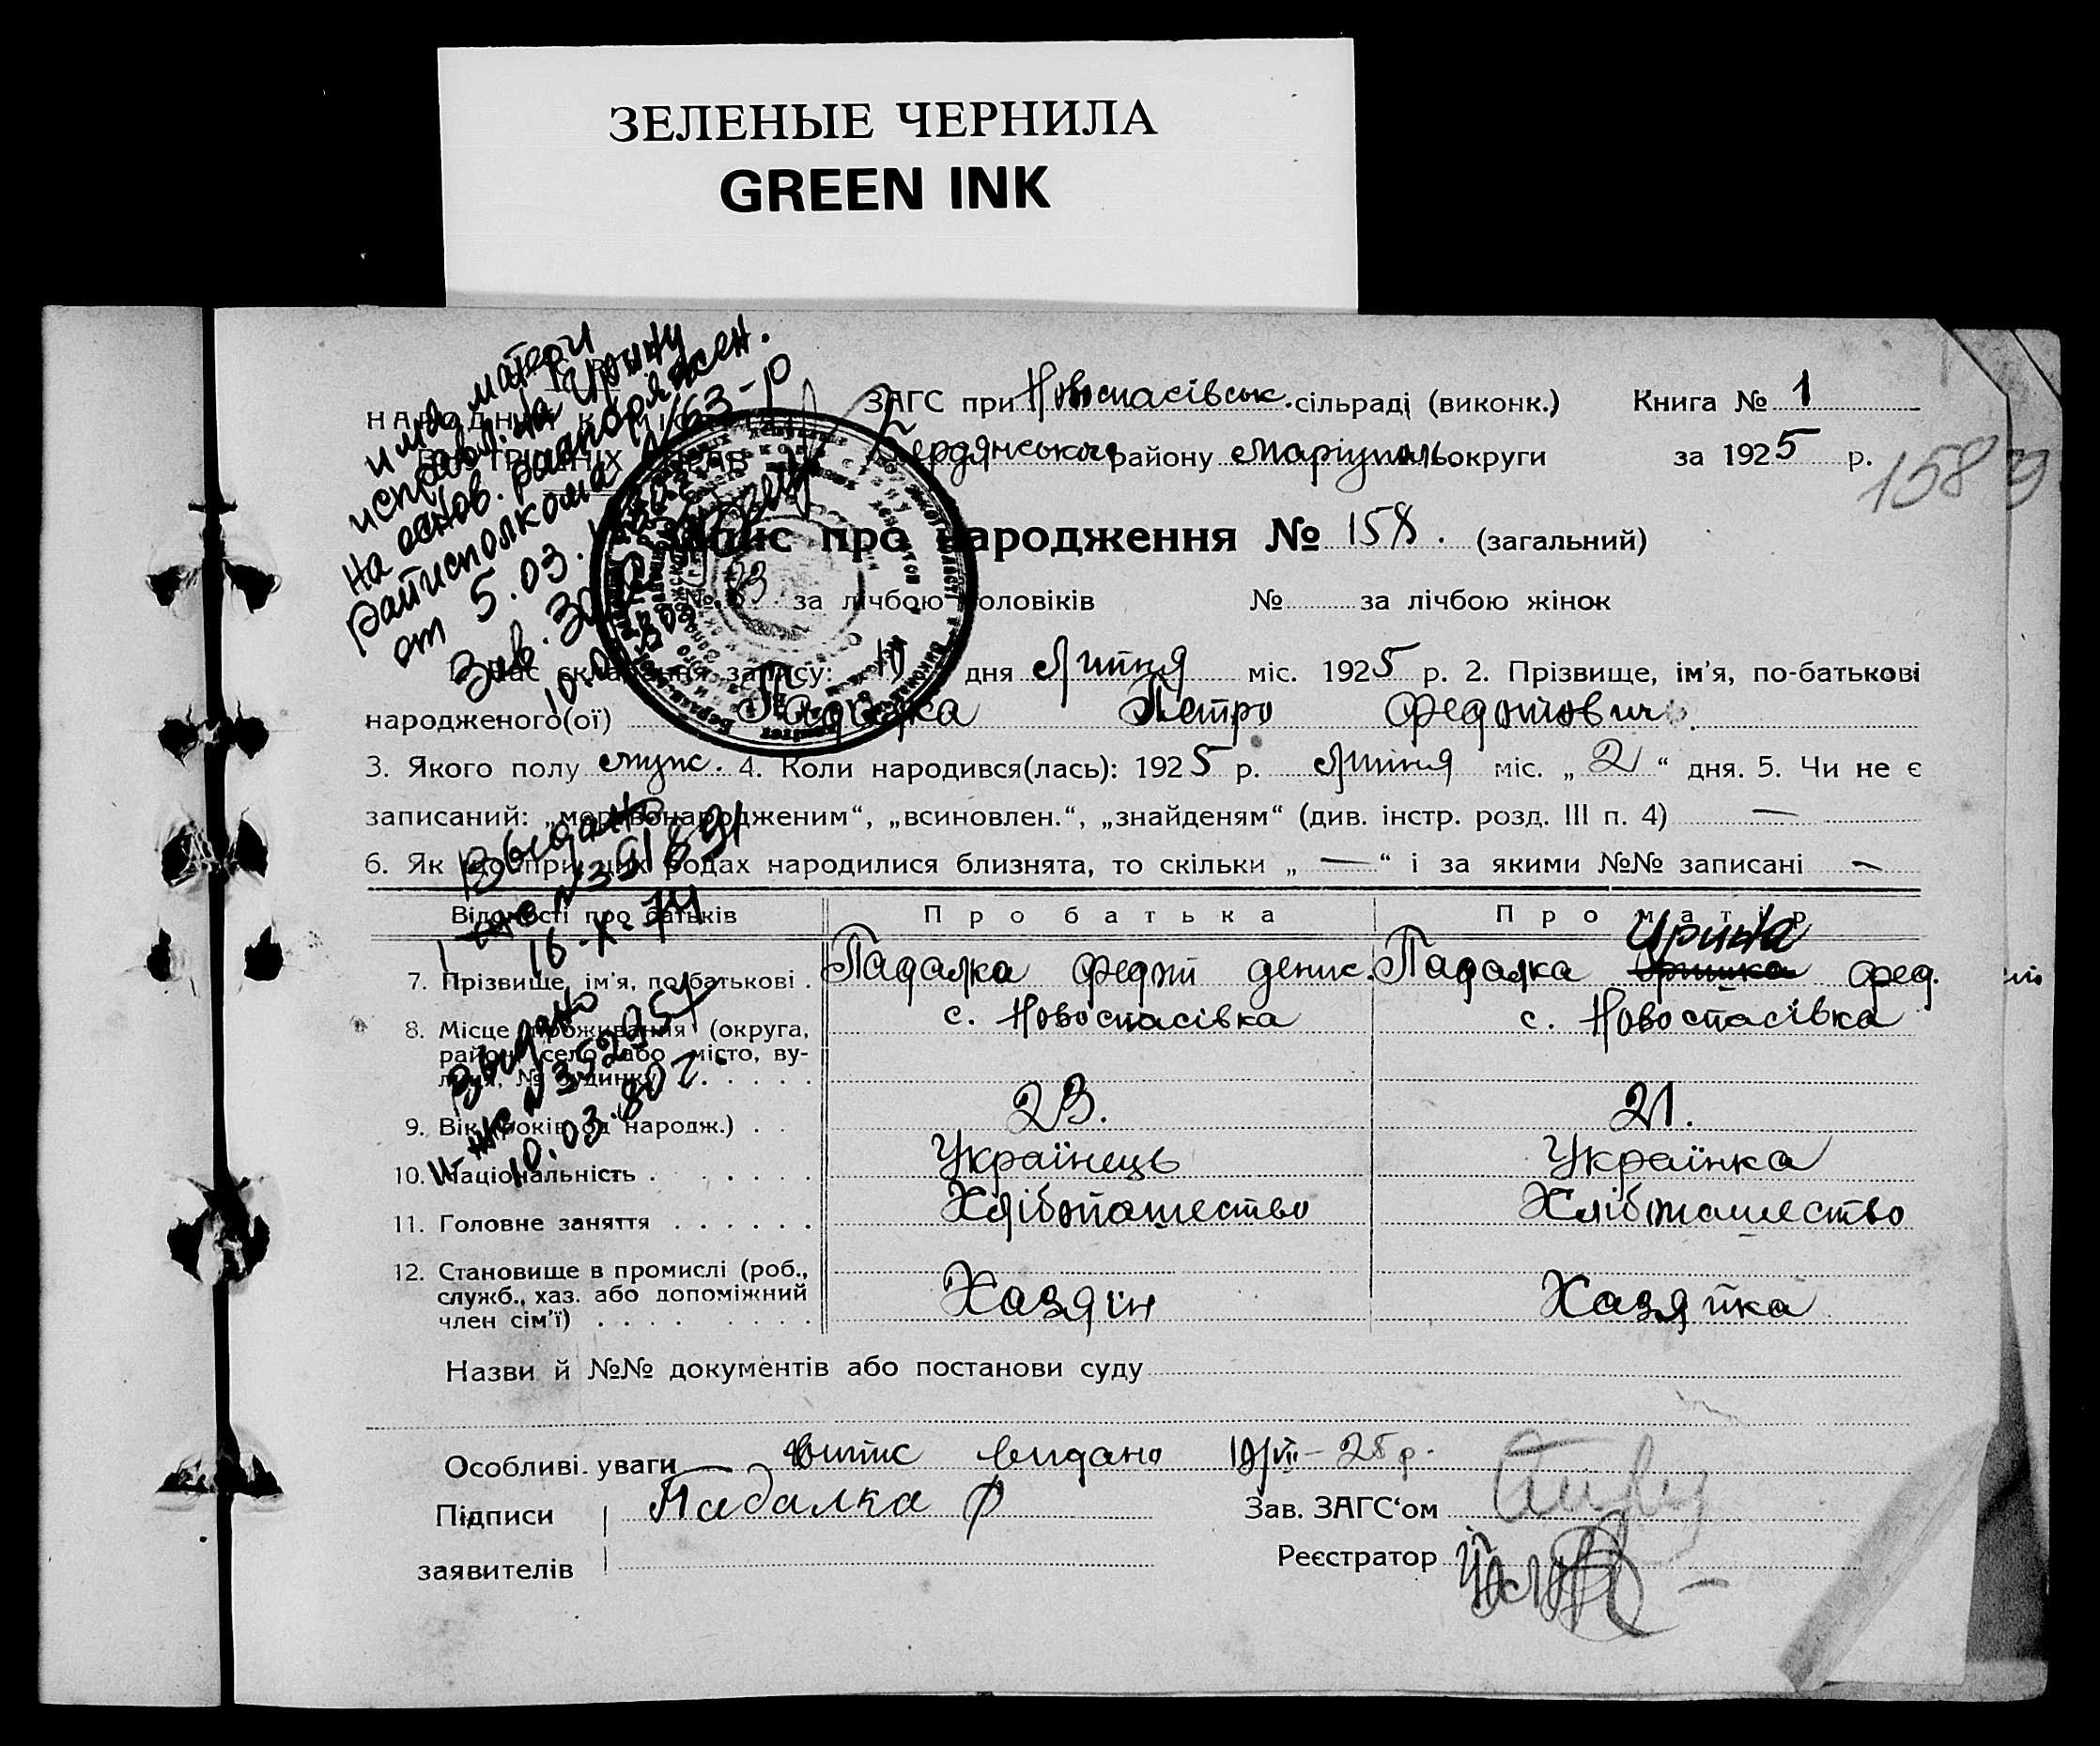 ЗЕЛЕНЫЕ ЧЕРНИЛА
GREEN INK
имя матери
исправл. на Ирину
на основ. распоряжен.
райисполкома №163-р
от 5.03.
Зав.
ЗАГС при Новоспасівськ. сільраді (виконк.) Книга № 1
Бердянського району Маріупольс. округи за 1925 р.
158
Запис про народження № 158. (загальний)
№ 83 за лічбою чоловіків № за лічбою жінок
1. Час складання запису: 10 дня Липня міс. 1925 р. 2. Прізвище, ім'я, по-батькові
народженого(ої) Падалка Петро Федотович.
3. Якого полу муж. 4. Коли народився(лась): 1925 р. Липня міс. „ 2 “ дня. 5. Чи не є
записаний: „мертвонародженим“, „всиновлен.“, „знайденям“ (див. інстр. розд. III п. 4) —
6. Як що при цих родах народилися близнята, то скільки „ — “ і за якими №№ записані —
Выдано
16-X-74
Відомості про батьків Про батька Про матір
Ирина
7. Прізвище, ім'я, по-батькові . Падалка Федот Денис. Падалка Фед.
8. Місце проживання (округа, с. Новоспасівка с. Новоспасівка
район, село або місто, ву-
лиця, № будинку) . . . . .
Выдано
№352957
10.03.80 г.
9. Вік (років од народж.) . . 23. 21.
10. Національність . . . . . . Українець Українка
11. Головне заняття . . . . . . Хлібопашество Хлібопашество
12. Становище в промислі (роб., Хазяїн Хазяйка
служб., хаз. або допоміжний
член сім'ї) . . . . . . . .
Назви й №№ документів або постанови суду
Особливі уваги витис видано 10/VII-25 р.
Підписи Падалка Ф Зав. ЗАГС'ом
заявителів Реєстратор